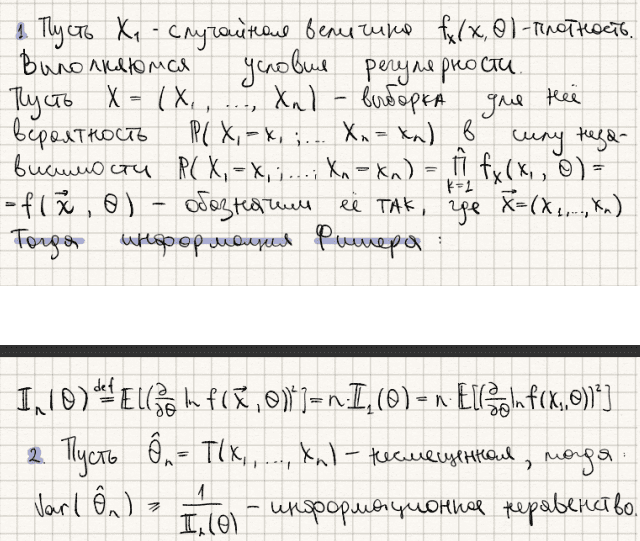 1. Пусть X₁ - случайная величина f_x(x, θ) - плотность.
Выполняются условия регулярности.
Пусть X = (X₁, ..., Xₙ) - выборка для неё
вероятность ℙ(X₁ = x₁; ... Xₙ = xₙ) в силу неза-
висимости ℙ(X₁ = x₁; ...; Xₙ = xₙ) = ∏ⁿₖ₌₁ f_x(x₁, θ) =
= f(x⃗, θ) - обозначим её ТАК, где x⃗ = (x₁, ..., xₙ)
Тогда информация Фишера :
𝕀ₙ(θ) ≝ E[(∂/∂θ ln f(x⃗, θ))²] = n·𝕀₁(θ) = n·E[(∂/∂θ ln f(x₁, θ))²]
2. Пусть θ̂ₙ = T(x₁, ..., xₙ) - несмещенная, тогда :
Var(θ̂ₙ) ≥ 1/𝕀ₙ(θ) - информационное неравенство.